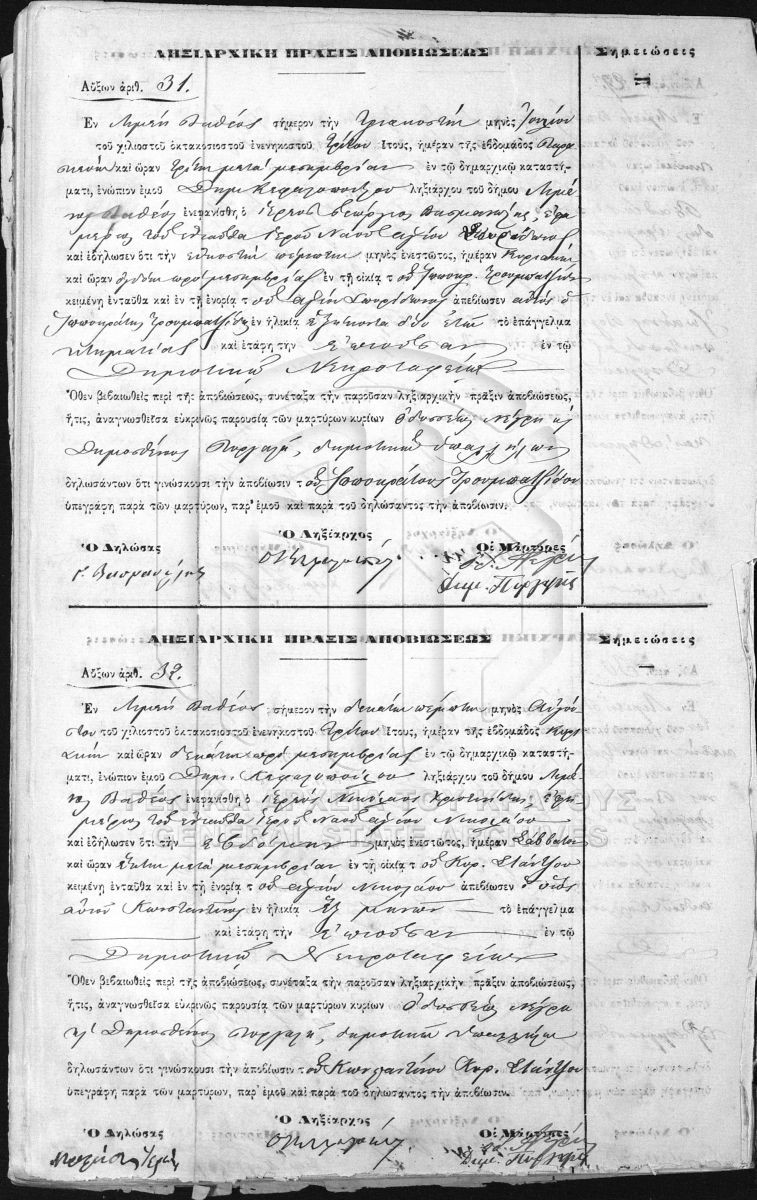 ΛΗΞΙΑΡΧΙΚΗ ΠΡΑΞΙΣ ΑΠΟΒΙΩΣΕΩΣ
Σημειώσεις
Αὔξων ἀριθ. 31.
Ἐν Λιμένι Βαθέος σήμερον τὴν τριακοστὴν μηνὸς Ἰουλίου
τοῦ χιλιοστοῦ ὀκτακοσιοστοῦ ἐνενηκοστοῦ τρίτου ἔτους, ἡμέραν τῆς ἑβδομάδος Παρα
σκευὴν καὶ ὥραν τρίτην μετὰ μεσημβρίαν ἐν τῷ δημαρχικῷ καταστή-
ματι, ἐνώπιον ἐμοῦ Δημ. Κεφαλοπούλου ληξιάρχου τοῦ δήμου Λιμέ
νος Βαθέος ἐνεφανίσθη ὁ ἱερεὺς Γεώργιος ἐφη
μέριος τοῦ ἐνταῦθα ἱεροῦ Ναοῦ ἁγίου Σπυρίδωνος
καὶ ἐδήλωσεν ὅτι τὴν εἰκοστὴν πέμπτην μηνὸς ἐνεστῶτος, ἡμέραν Κυριακὴν
καὶ ὥραν ὀγδόην πρὸ μεσημβρίας ἐν τῇ οἰκίᾳ τοῦ Ἱπποκρ. Τρουμπατζίδου
κειμένῃ ἐνταῦθα καὶ ἐν τῇ ἐνορίᾳ τοῦ ἁγίου Σπυρίδωνος ἀπεβίωσεν αὐτὸς ὁ
Ἱπποκράτης Τρουμπατζίδης ἐν ἡλικίᾳ ἑξήκοντα δύο ἐτῶν τὸ ἐπάγγελμα
κτηματίας καὶ ἐτάφη τὴν ἐπιοῦσαν ἐν τῷ
Δημοτικῷ Νεκροταφείῳ
Ὅθεν βεβαιωθεὶς περὶ τῆς ἀποβιώσεως, συνέταξα τὴν παροῦσαν ληξιαρχικὴν πρᾶξιν ἀποβιώσεως,
ἥτις, ἀναγνωσθεῖσα εὐκρινῶς παρουσίᾳ τῶν μαρτύρων κυρίων Ὀδυσσέως Νέγρη κ
Δημοσθένους Πυργαλῆ, δημοτικῶν ὑπαλλήλων
δηλωσάντων ὅτι γινώσκουσι τὴν ἀποβίωσιν τοῦ Ἱπποκράτους Τρουμπατζίδου
ὑπεγράφη παρὰ τῶν μαρτύρων, παρ' ἐμοῦ καὶ παρὰ τοῦ δηλώσαντος τὴν ἀποβίωσιν.
Ὁ Δηλώσας Ὁ Ληξίαρχος Οἱ Μάρτυρες
ΛΗΞΙΑΡΧΙΚΗ ΠΡΑΞΙΣ ΑΠΟΒΙΩΣΕΩΣ
Σημειώσεις
Αὔξων ἀριθ. 32.
Ἐν Λιμένι Βαθέος σήμερον τὴν δεκάτην πέμπτην μηνὸς Αὐγού
στου τοῦ χιλιοστοῦ ὀκτακοσιοστοῦ ἐνενηκοστοῦ τρίτου ἔτους, ἡμέραν τῆς ἑβδομάδος Κυρι
ακὴν καὶ ὥραν δεκάτην πρὸ μεσημβρίας ἐν τῷ δημαρχικῷ καταστή-
ματι, ἐνώπιον ἐμοῦ Δημ. Κεφαλοπούλου ληξιάρχου τοῦ δήμου Λιμέ
νος Βαθέος ἐνεφανίσθη ὁ ἱερεὺς Νικόλαος ἐφη
μέριος τοῦ ἐνταῦθα ἱεροῦ Ναοῦ ἁγίου Νικολάου
ΓΕΝΙΚΑ ΑΡΧΕΙΑ ΤΟΥ ΚΡΑΤΟΥΣ
GENERAL STATE ARCHIVES
καὶ ἐδήλωσεν ὅτι τὴν ἑβδόμην μηνὸς ἐνεστῶτος, ἡμέραν Σάββατον
καὶ ὥραν ἕκτην μετὰ μεσημβρίαν ἐν τῇ οἰκίᾳ τοῦ Κυρ. Στάντζου
κειμένῃ ἐνταῦθα καὶ ἐν τῇ ἐνορίᾳ τοῦ ἁγίου Νικολάου ἀπεβίωσεν ὁ υἱὸς
αὐτοῦ Κωνσταντῖνος ἐν ἡλικίᾳ ἓξ μηνῶν τὸ ἐπάγγελμα
καὶ ἐτάφη τὴν ἐπιοῦσαν ἐν τῷ
Δημοτικῷ Νεκροταφείῳ
Ὅθεν βεβαιωθεὶς περὶ τῆς ἀποβιώσεως, συνέταξα τὴν παροῦσαν ληξιαρχικὴν πρᾶξιν ἀποβιώσεως,
ἥτις, ἀναγνωσθεῖσα εὐκρινῶς παρουσίᾳ τῶν μαρτύρων κυρίων Ὀδυσσέως Νέγρη
κ Δημοσθένους Πυργαλῆ, δημοτικῶν ὑπαλλήλων
δηλωσάντων ὅτι γινώσκουσι τὴν ἀποβίωσιν τοῦ Κωνσταντίνου Κυρ. Στάντζου
ὑπεγράφη παρὰ τῶν μαρτύρων, παρ' ἐμοῦ καὶ παρὰ τοῦ δηλώσαντος τὴν ἀποβίωσιν.
Ὁ Δηλώσας Ὁ Ληξίαρχος Οἱ Μάρτυρες